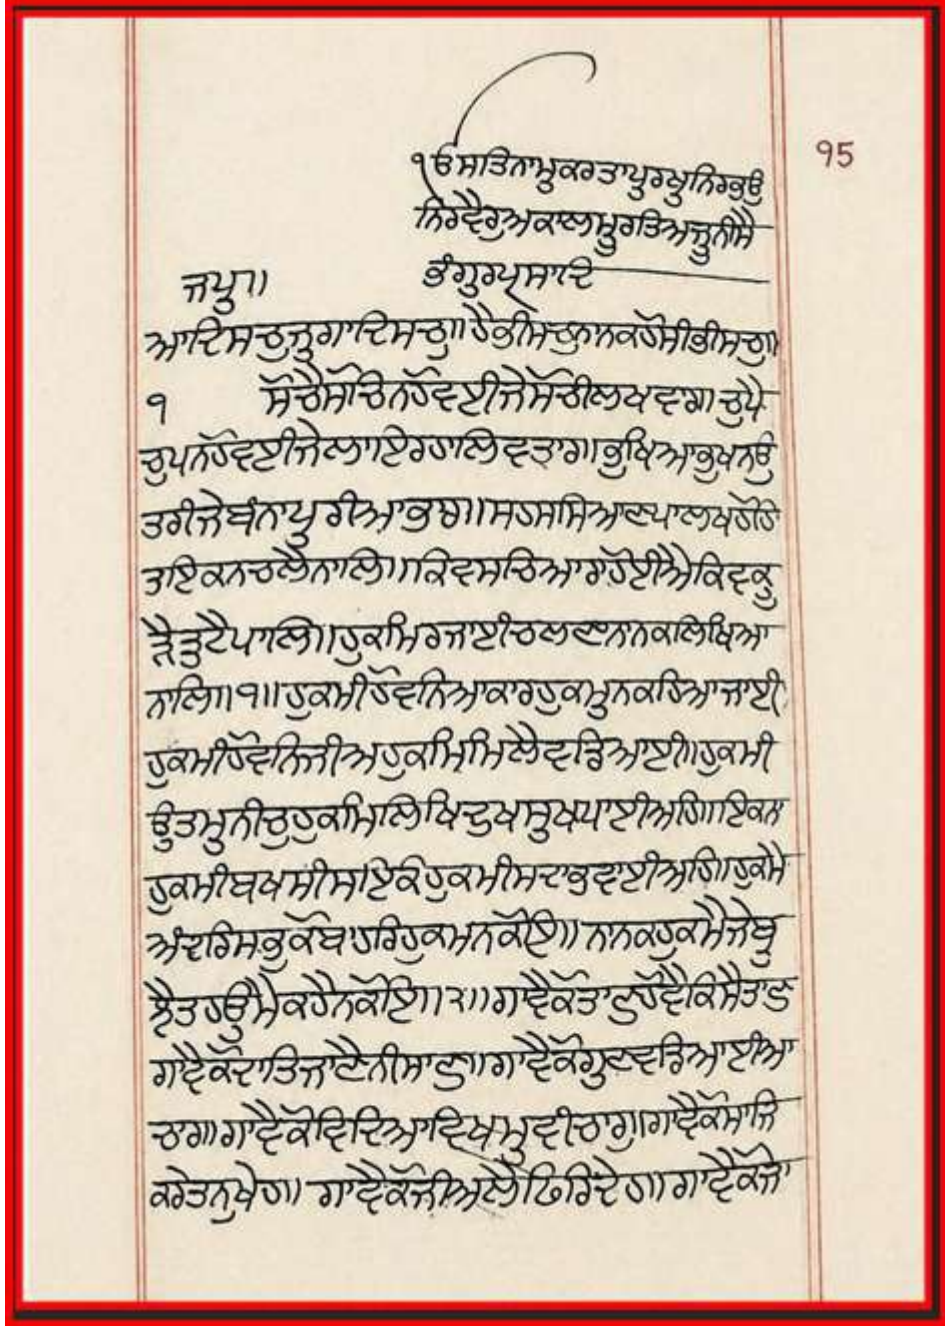 ੧੫
੧ਓ ਸਤਿਨਾਮੁਕਰਤਾਪੁਰਖੁਨਿਰਭਉ
ਨਿਰਵੈਰੁਅਕਾਲਮੂਰਤਿਅਜੂਨੀਸੈ
ਜਪੁ॥ ਭੰਗੁਰਪ੍ਰਸਾਦਿ
ਆਦਿਸਚੁਜੁਗਾਦਿਸਚੁ॥ਹੈਭੀਸਚੁਨਾਨਕਹੋਸੀਭੀਸਚੁ॥
੧ ਸੋਚੈਸੋਚਿਨਹੋਵਈਜੇਸੋਚੀਲਖਵਾਰ॥ਚੁਪੈ
ਚੁਪਨਹੋਵਈਜੇਲਾਇਰਹਾਲਿਵਤਾਰ॥ਭੁਖਿਆਭੁਖਨਉ
ਤਰੀਜੇਬੰਨਾਪੁਰੀਆਭਾਰ॥ਸਹਸਸਿਆਣਪਾਲਖਹੋਹਿ
ਤਾਇਕਨਚਲੈਨਾਲਿ॥ਕਿਵਸਚਿਆਰਾਹੋਈਐਕਿਵਕੂ
ੜੈਤੁਟੈਪਾਲਿ॥ਹੁਕਮਿਰਜਾਈਚਲਣਾਨਾਨਕਲਿਖਿਆ
ਨਾਲਿ॥੧॥ਹੁਕਮੀਹੋਵਨਿਆਕਾਰਹੁਕਮੁਨਕਹਿਆਜਾਈ
ਹੁਕਮੀਹੋਵਨਿਜੀਅਹੁਕਮਿਮਿਲੈਵਡਿਆਈ॥ਹੁਕਮੀ
ਉਤਮੁਨੀਚੁਹੁਕਮਿਲਿਖਿਦੁਖਸੁਖਪਾਈਅਹਿ॥ਇਕਨਾ
ਹੁਕਮੀਬਖਸੀਸਇਕਿਹੁਕਮੀਸਦਾਭਵਾਈਅਹਿ॥ਹੁਕਮੈ
ਅੰਦਰਿਸਭੁਕੋਬਾਹਰਿਹੁਕਮਨਕੋਇ॥ਨਾਨਕਹੁਕਮੈਜੇਬੁ
ਝੈਤਹਉਮੈਕਹੈਨਕੋਇ॥੨॥ਗਾਵੈਕੋਤਾਣੁਹੋਵੈਕਿਸੈਤਾਣੁ
ਗਾਵੈਕੋਦਾਤਿਜਾਣੈਨੀਸਾਣੁ॥ਗਾਵੈਕੋਗੁਣਵਡਿਆਈਆ
ਚਾਰ॥ਗਾਵੈਕੋਵਿਦਿਆਵਿਖਮੁਵੀਚਾਰੁ॥ਗਾਵੈਕੋਸਾਜਿ
ਕਰੇਤਨੁਖੇਹ॥ ਗਾਵੈਕੋਜੀਅਲੈਫਿਰਿਦੇਹ॥ਗਾਵੈਕੋਜਾ